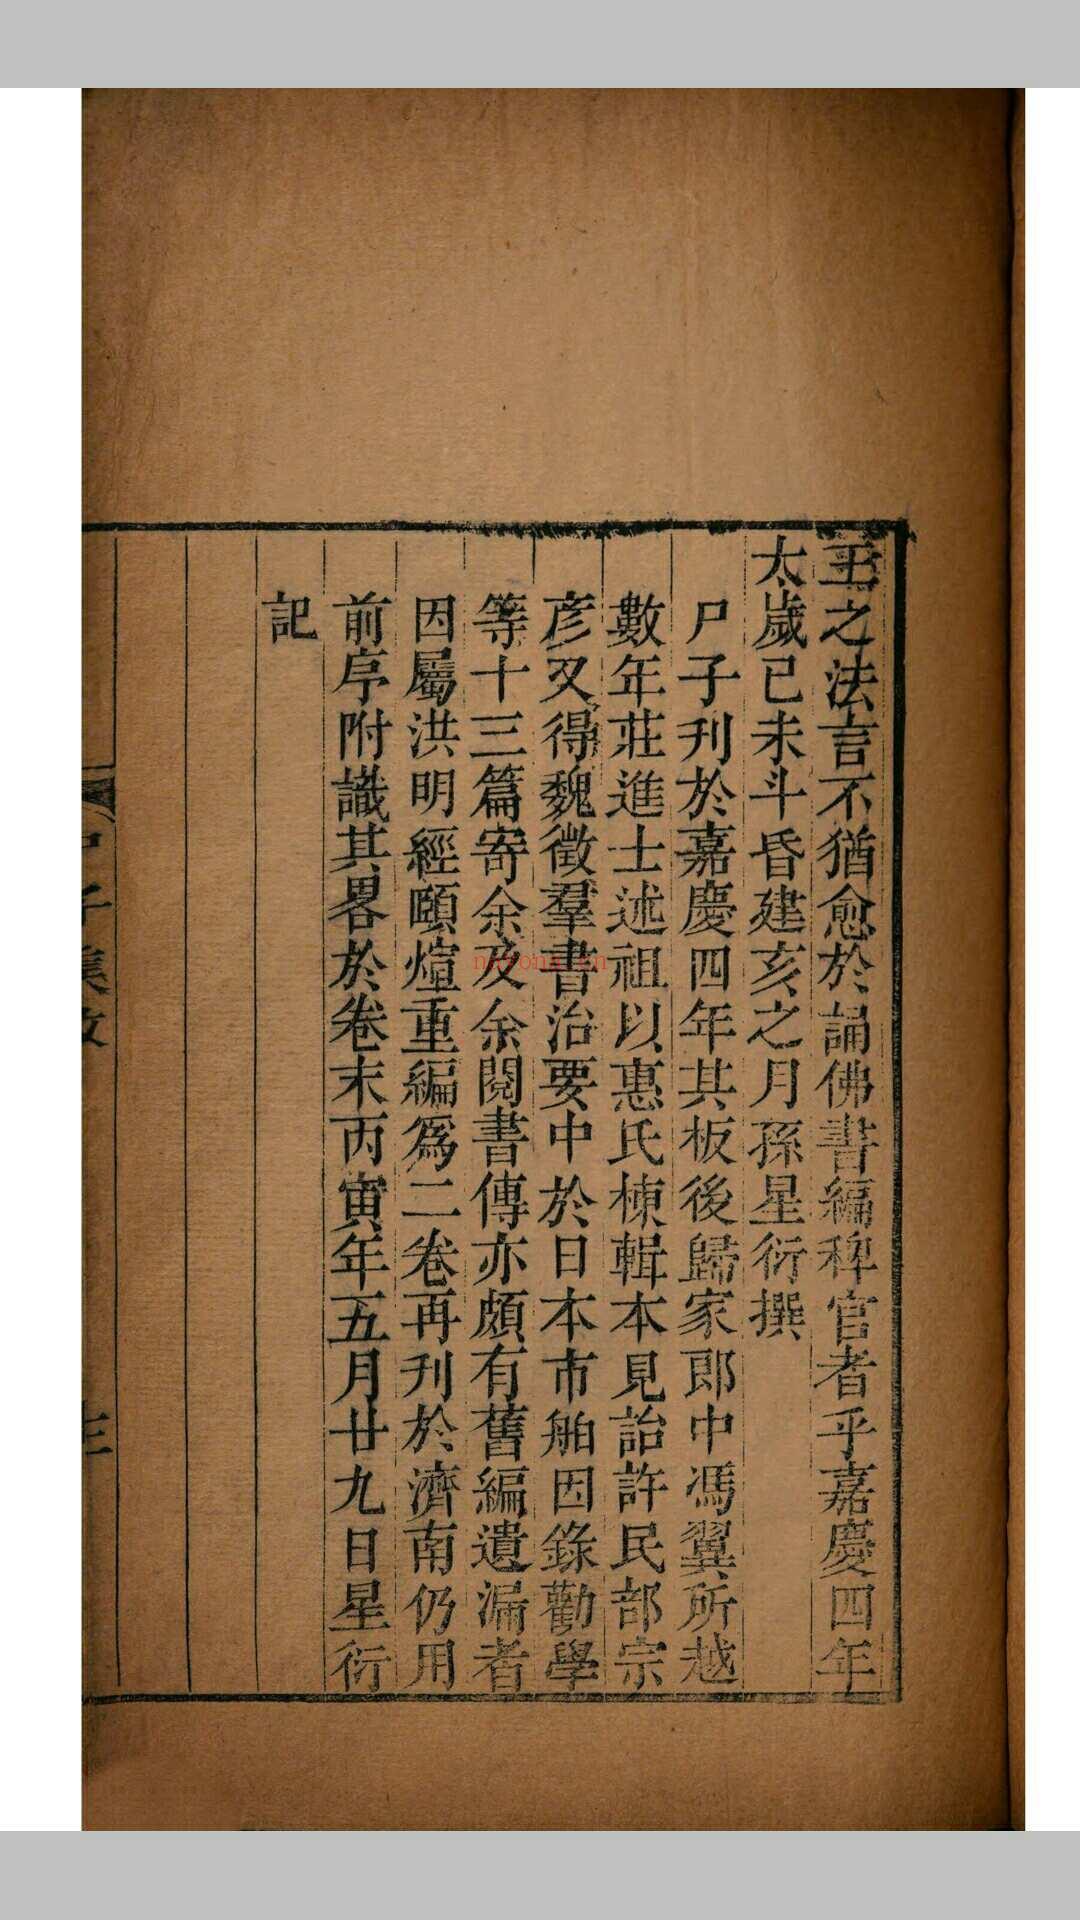 王之法言不猶愈於誦佛書編稗官者乎嘉慶四年
太歲已未斗昏建亥之月孫星衍撰
尸子刋於嘉慶四年其板後歸家郎中馮翼所越
數年莊進士述祖以惠氏棟輯本見詒許民部宗
彥又得魏徵羣書治要中於日本市舶因錄勸學
等十三篇寄余及余閱書傳亦頗有舊編遺漏者
因屬洪明經頤煊重編爲二卷再刋於濟南仍用
前序附識其畧於卷末丙寅年五月廿九日星衍
記
子集